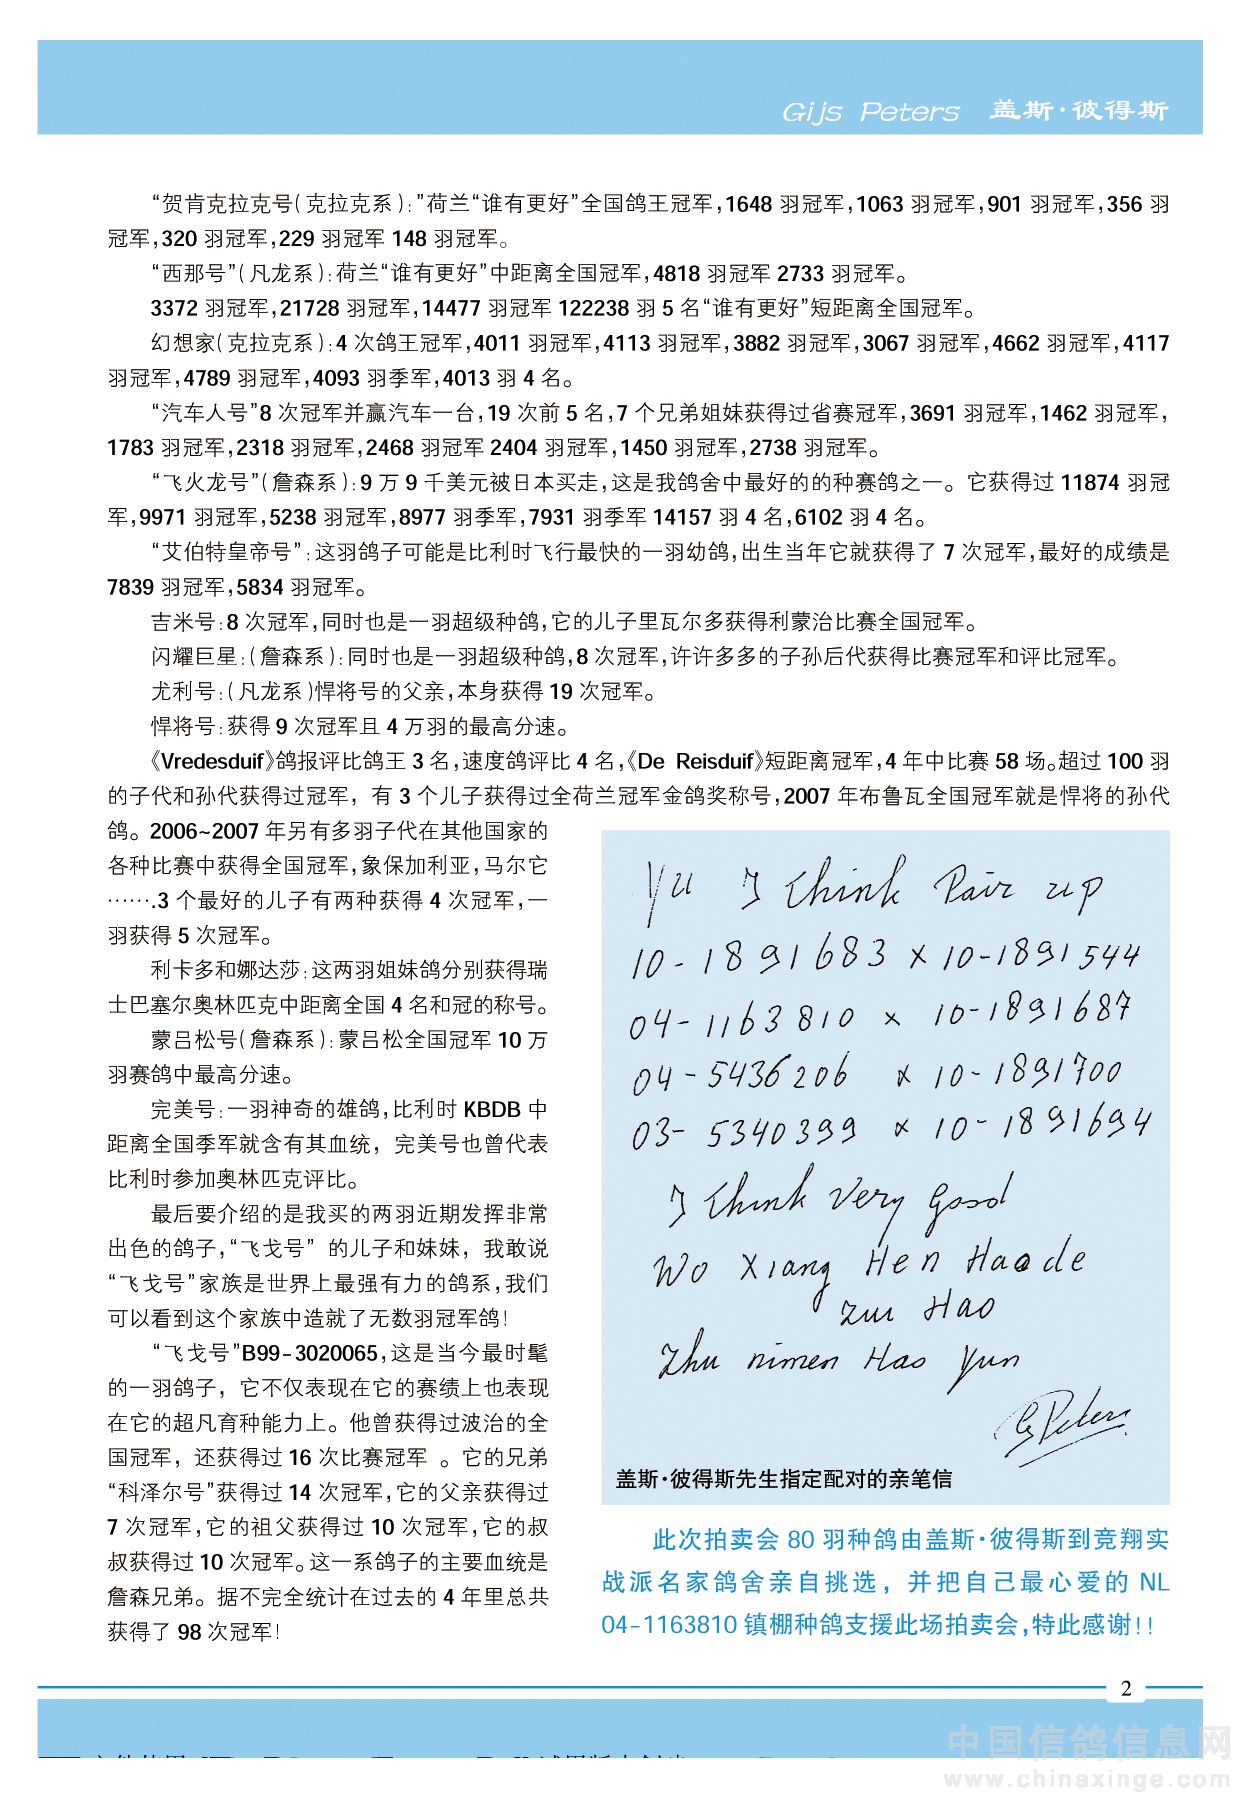 Gijs Peters 盖斯·彼得斯
“贺肯克拉克号(克拉克系):”荷兰“谁有更好”全国鸽王冠军,1648 羽冠军,1063 羽冠军,901 羽冠军,356 羽
冠军,320 羽冠军,229 羽冠军 148 羽冠军。
“西那号”(凡龙系):荷兰“谁有更好”中距离全国冠军,4818 羽冠军 2733 羽冠军。
3372 羽冠军,21728 羽冠军,14477 羽冠军 122238 羽 5 名“谁有更好”短距离全国冠军。
幻想家(克拉克系):4 次鸽王冠军,4011 羽冠军,4113 羽冠军,3882 羽冠军,3067 羽冠军,4662 羽冠军,4117
羽冠军,4789 羽冠军,4093 羽季军,4013 羽 4 名。
“汽车人号”8 次冠军并赢汽车一台,19 次前 5 名,7 个兄弟姐妹获得过省赛冠军,3691 羽冠军,1462 羽冠军,
1783 羽冠军,2318 羽冠军,2468 羽冠军 2404 羽冠军,1450 羽冠军,2738 羽冠军。
“飞火龙号”(詹森系):9 万 9 千美元被日本买走,这是我鸽舍中最好的的种赛鸽之一。它获得过 11874 羽冠
军,9971 羽冠军,5238 羽冠军,8977 羽季军,7931 羽季军 14157 羽 4 名,6102 羽 4 名。
“艾伯特皇帝号”:这羽鸽子可能是比利时飞行最快的一羽幼鸽,出生当年它就获得了 7 次冠军,最好的成绩是
7839 羽冠军,5834 羽冠军。
吉米号:8 次冠军,同时也是一羽超级种鸽,它的儿子里瓦尔多获得利蒙治比赛全国冠军。
闪耀巨星:(詹森系):同时也是一羽超级种鸽,8 次冠军,许许多多的子孙后代获得比赛冠军和评比冠军。
尤利号:(凡龙系)悍将号的父亲,本身获得 19 次冠军。
悍将号:获得 9 次冠军且 4 万羽的最高分速。
《Vredesduif》鸽报评比鸽王 3 名,速度鸽评比 4 名,《De Reisduif》短距离冠军,4 年中比赛 58 场。超过 100 羽
的子代和孙代获得过冠军，有 3 个儿子获得过全荷兰冠军金鸽奖称号,2007 年布鲁瓦全国冠军就是悍将的孙代
鸽。2006~2007 年另有多羽子代在其他国家的
各种比赛中获得全国冠军,象保加利亚,马尔它
…….3 个最好的儿子有两种获得 4 次冠军,一
羽获得 5 次冠军。
利卡多和娜达莎:这两羽姐妹鸽分别获得瑞
士巴塞尔奥林匹克中距离全国 4 名和冠的称号。
蒙吕松号(詹森系):蒙吕松全国冠军 10 万
羽赛鸽中最高分速。
完美号:一羽神奇的雄鸽,比利时 KBDB 中
距离全国季军就含有其血统，完美号也曾代表
比利时参加奥林匹克评比。
最后要介绍的是我买的两羽近期发挥非常
出色的鸽子,“飞戈号”的儿子和妹妹，我敢说
“飞戈号”家族是世界上最强有力的鸽系,我们
可以看到这个家族中造就了无数羽冠军鸽!
“飞戈号”B99-3020065,这是当今最时髦
的一羽鸽子，它不仅表现在它的赛绩上也表现
在它的超凡育种能力上。他曾获得过波治的全
国冠军，还获得过 16 次比赛冠军 。它的兄弟
“科泽尔号”获得过 14 次冠军,它的父亲获得过
7 次冠军,它的祖父获得过 10 次冠军,它的叔
叔获得过 10 次冠军。这一系鸽子的主要血统是
詹森兄弟。据不完全统计在过去的 4 年里总共
获得了 98 次冠军!
Yu I think Pair up
10-1891683 x 10-1891544
04-1163810 x 10-1891687
04-5436206 x 10-1891700
03-5340399 x 10-1891694
I think Very good
Wo Xiang Hen Hao de
zui Hao
Zhu nimen Hao Yun
G Peters
盖斯·彼得斯先生指定配对的亲笔信
此次拍卖会 80 羽种鸽由盖斯·彼得斯到竞翔实
战派名家鸽舍亲自挑选，并把自己最心爱的 NL
04-1163810 镇棚种鸽支援此场拍卖会,特此感谢!!
2
中国信鸽信息网
www.chinaxinge.com